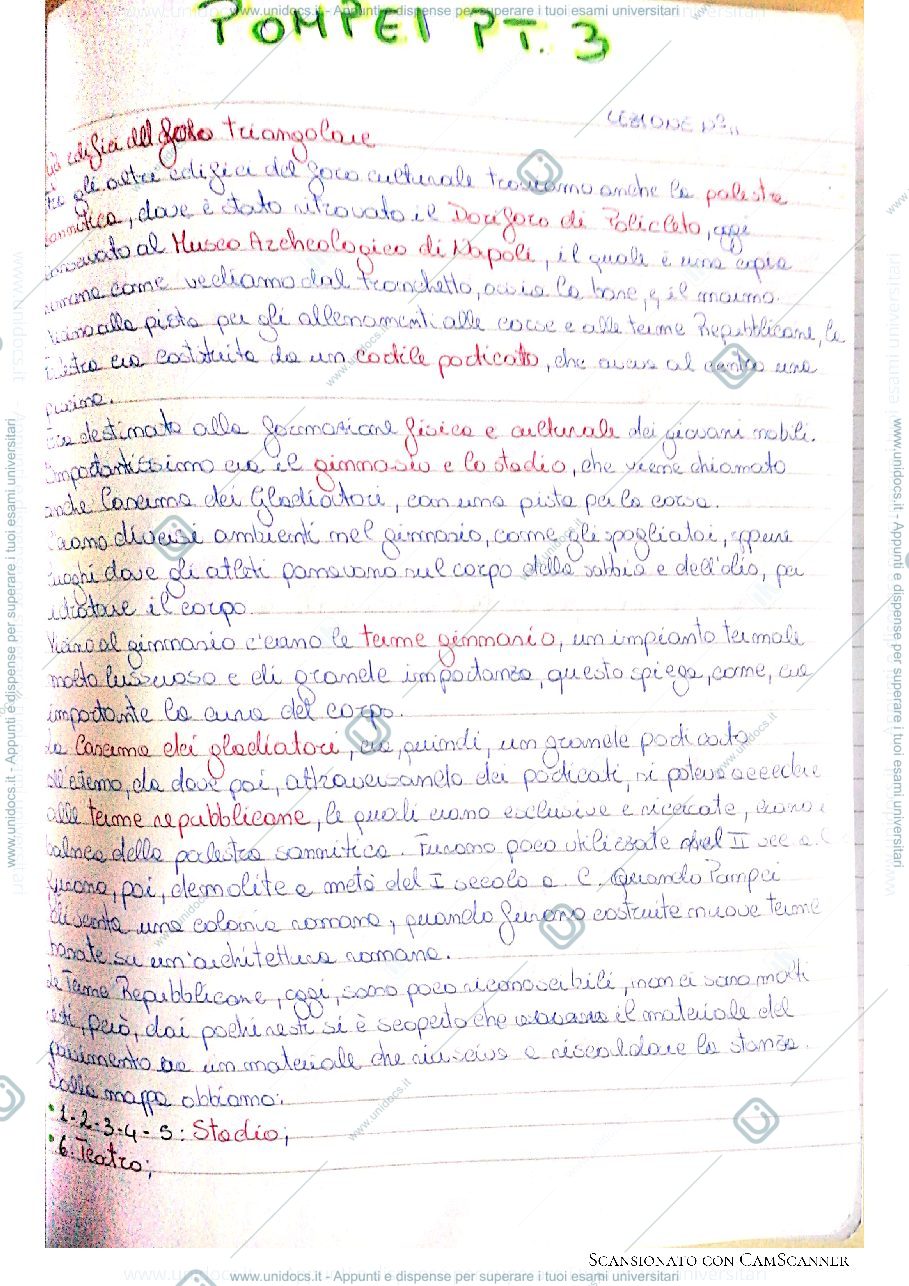 POMPEI PT. 3
LEZIONE N°11
edifici del foro triangolare
gli altri edifici del foro culturale troviamo anche la palestra
sannitica, dove è stato ritrovato il Doriforo di Policleto, oggi
conservato al Museo Archeologico di Napoli, il quale è una copia
romana come vediamo dal tronchetto, ossia la base, e il marmo.
Vicino alla pista per gli allenamenti alle corse e alle terme Repubblicane, la
palestra era costituita da un cortile porticato, che aveva al centro una
piscina.
Era destinata alla formazione fisica e culturale dei giovani nobili.
Importantissimo era il ginnasio e lo stadio, che viene chiamato
anche Caserma dei Gladiatori, con una pista per la corsa.
C'erano diversi ambienti nel ginnasio, come gli spogliatoi, oppure
luoghi dove gli atleti passavano sul corpo della sabbia e dell'olio, per
idratare il corpo.
Vicino al ginnasio c'erano le terme ginnasio, un impianto termale
molto lussuoso e di grande importanza, questo spiega, come, era
importante la cura del corpo.
La Caserma dei gladiatori, era, quindi, un grande porticato
all'esterno, da dove poi, attraversando dei porticati, si poteva accedere
alle terme repubblicane, le quali erano esclusive e ricercate, erano i
balnea della palestra sannitica. Furono poco utilizzate nel II sec a.C
furono, poi, demolite a metà del I secolo a.C. Quando Pompei
diventa una colonia romana, quando furono costruite nuove terme
basate su un'architettura romana.
Le Terme Repubblicane, oggi, sono poco riconoscibili, non ci sono molti
resti, però, dai pochi resti si è scoperto che il materiale del
pavimento era un materiale che riusciva a riscaldare la stanza.
Dalla mappa abbiamo:
• 1-2-3-4-5: Stadio;
• 6: Teatro;
SCANSIONATO CON CAMSCANNER
www.unidocs.it - Appunti e dispense per superare i tuoi esami universitari